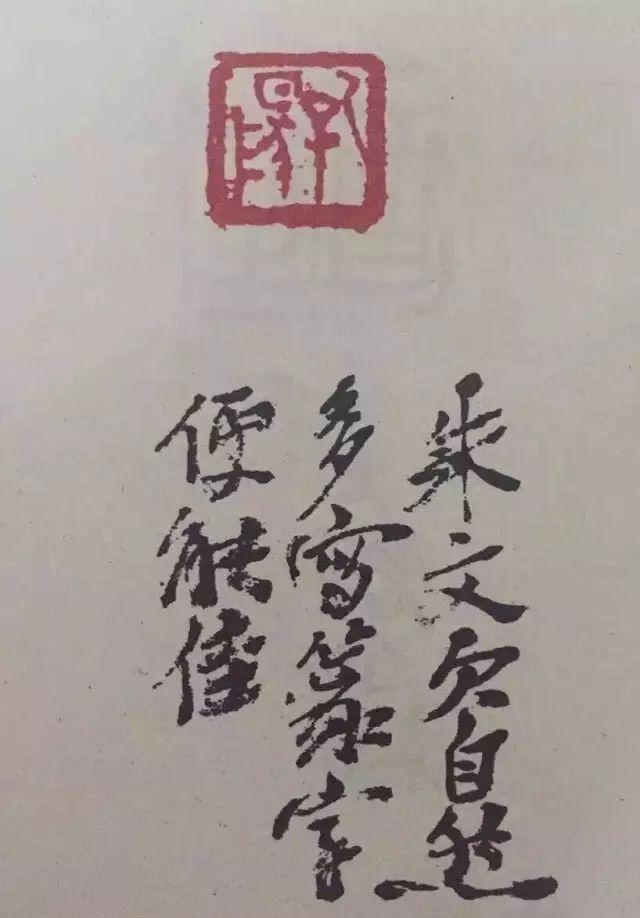 朱文欠自然
多写篆字
便能佳